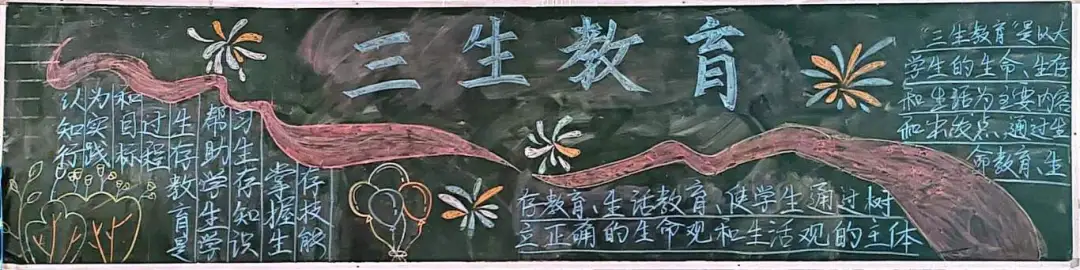 三生教育
认知行
为实践
和目标
过程
生存教育是
帮助学生学
习生存知识
掌握生
存技能
"三生教育"是以大
学生的生命、生存
和生活为主要内容
和发点、通过生
命教育、生
存教育、生活教育、使学生通过树
立正确的生命观和生活观的主体